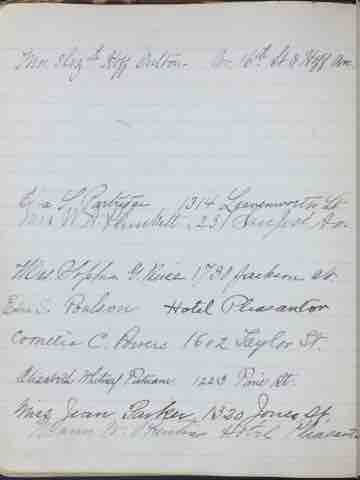 Mrs. Eliz.th Hoff 16th St & Hoff Ave.
Eliza S. Partridge 1314 Leavenworth St
Mrs W. A. Plunkett, 231 Av.
Mrs Sophia G. 1730 Jackson St.
S. Poulson Hotel Pleasanton
Cornelia C. Powers 1602 Taylor St.
Elizabeth Whitney Putnam 1223 Pine St.
Miss Jean Parker 1320 Jones St.
Hotel Pleasanton